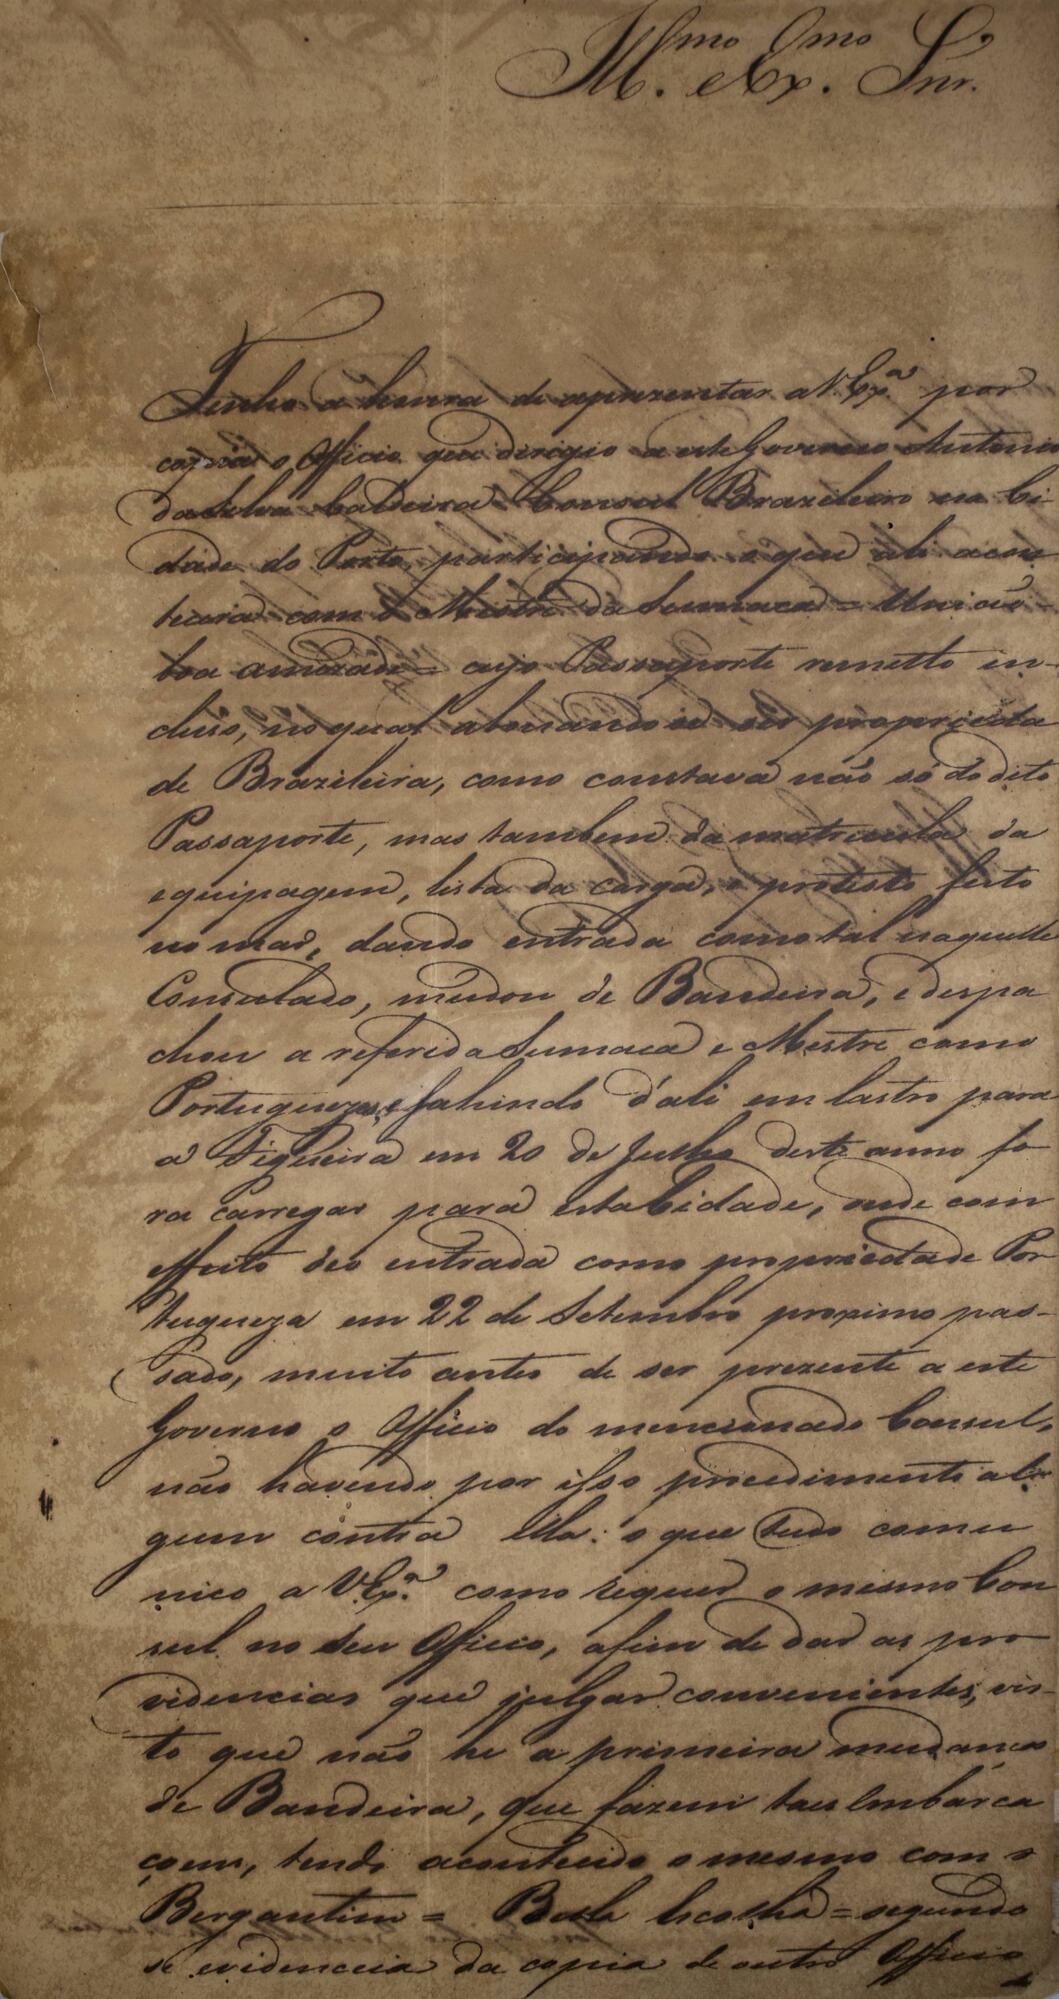 Ill.mo Ex.mo Snr.
Tenho a honra de aprezentar a V. Ex.a por
copia o Officio que dirigio a este Governo Antonio
da Silva Caldeira Consul Brazileiro na Ci-
dade do Porto, participando o que ali acon
tecera com o Mestre da Sumaca = União
boa amizade = cujo Passaporte remetto in-
cluso, no qual abonando se ser proprieda
de Brazileira, como constava não só do dito
Passaporte, mas tambem da matricula da
equipagem, lista da carga, e protesto feito
no mar, dando entrada como tal naquelle
Consulado, mudou de Bandeira, e despa
chou a referida Sumaca e Mestre como
Portugueza, e sahindo d'ali em lastro para
a Figueira em 20 de Julho deste anno fo
ra carregar para esta Cidade, onde com
effeito deo entrada como propriedade Por
tugueza em 22 de Setembro proximo pas-
sado, muito antes de ser prezente a este
Governo o Officio do mencionado Consul,
não havendo por isso procedimento al-
gum contra ella: o que tudo commu
nico a V. Ex.a como requer o mesmo Con
sul no seu Officio, afim de dar as pro
videncias que julgar convenientes, vis-
to que não he a primeira mudança
de Bandeira, que fazem taes Embarca
çoens, tendo acontecido o mesmo com o
Bergantim = Bella Escolha = segundo
se evidenceia da copia de outro Officio